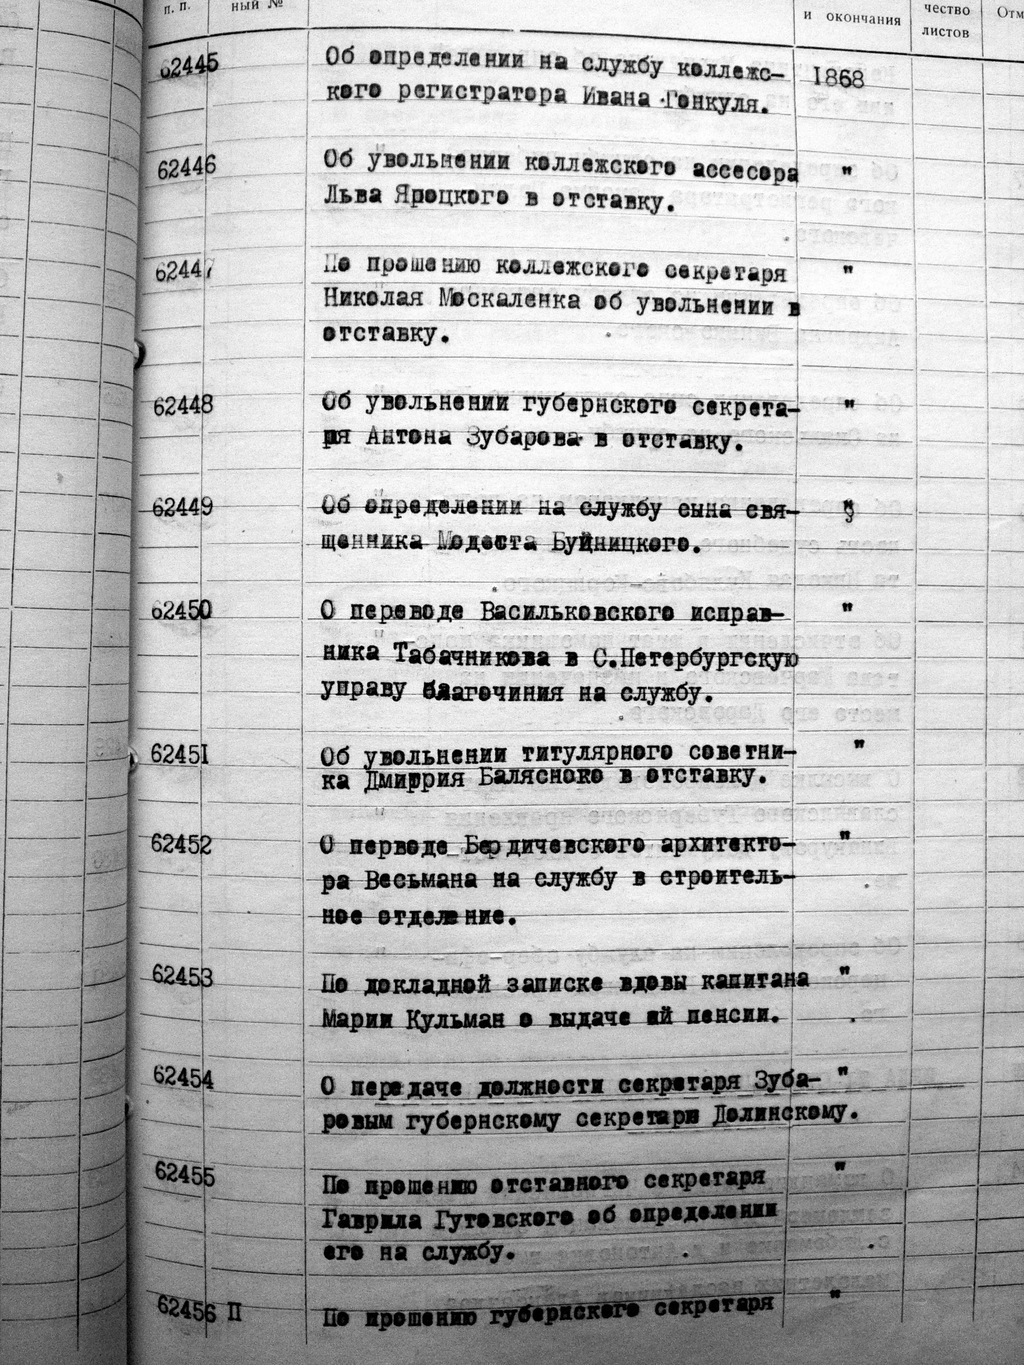 п. п. ный № и окончания чество листов Отм
62445 Об определении на службу коллежс- 1868
кого регистратора Ивана Гонкуля.
62446 Об увольнении коллежского ассесора "
Льва Яроцкого в отставку.
62447 По прошению коллежского секретаря "
Николая Москаленка об увольнении в
отставку.
62448 Об увольнении губернского секрета- "
ря Антона Зубарова в отставку.
62449 Об определении на службу сына свя- "
щенника Модеста Буйницкого.
62450 О переводе Васильковского исправ- "
ника Табачникова в С.Петербургскую
управу благочиния на службу.
62451 Об увольнении титулярного советни- "
ка Дмитрия Балясноко в отставку.
62452 О перводе Бердичевского архитекто- "
ра Весьмана на службу в строитель-
ное отделение.
62453 По докладной записке вдовы капитана "
Марии Кульман о выдаче ей пенсии.
62454 О передаче должности секретаря Зуба- "
ровым губернскому секретарю Долинскому.
62455 По прошению отставного секретаря "
Гаврила Гутовского об определении
его на службу.
62456 П По прошению губернского секретаря "